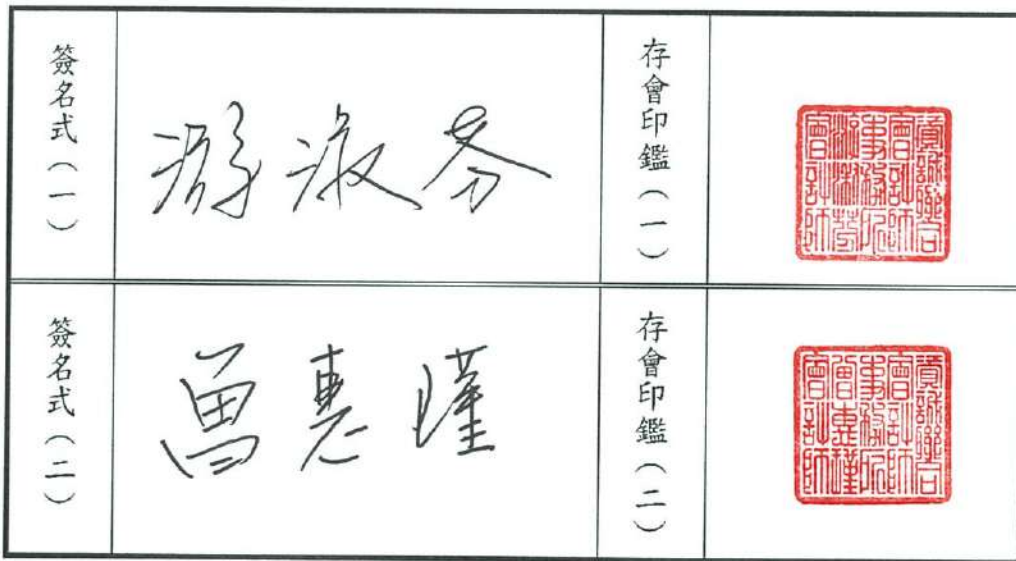 簽名式（一）
游淑芬
存會印鑑（一）
資誠聯合
會計師
事務所
游淑芬
會計師
簽名式（二）
曾惠瑾
存會印鑑（二）
資誠聯合
會計師
事務所
曾惠瑾
會計師